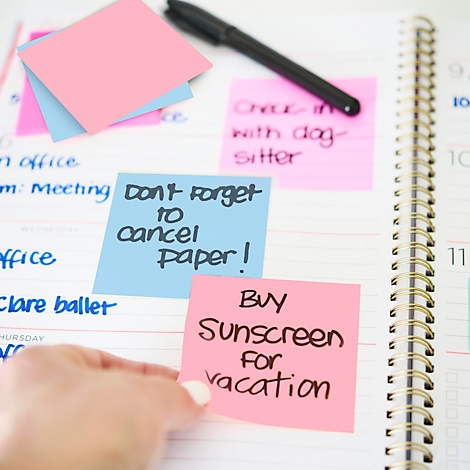 9
10
ce
Check-in
with dog-
sitter
n office
m: Meeting
Don't Forget
to
cancel
paper!
WEDNESDAY
office
11
Clare ballet
Buy
Sunscreen
For
vacation
THURSDAY